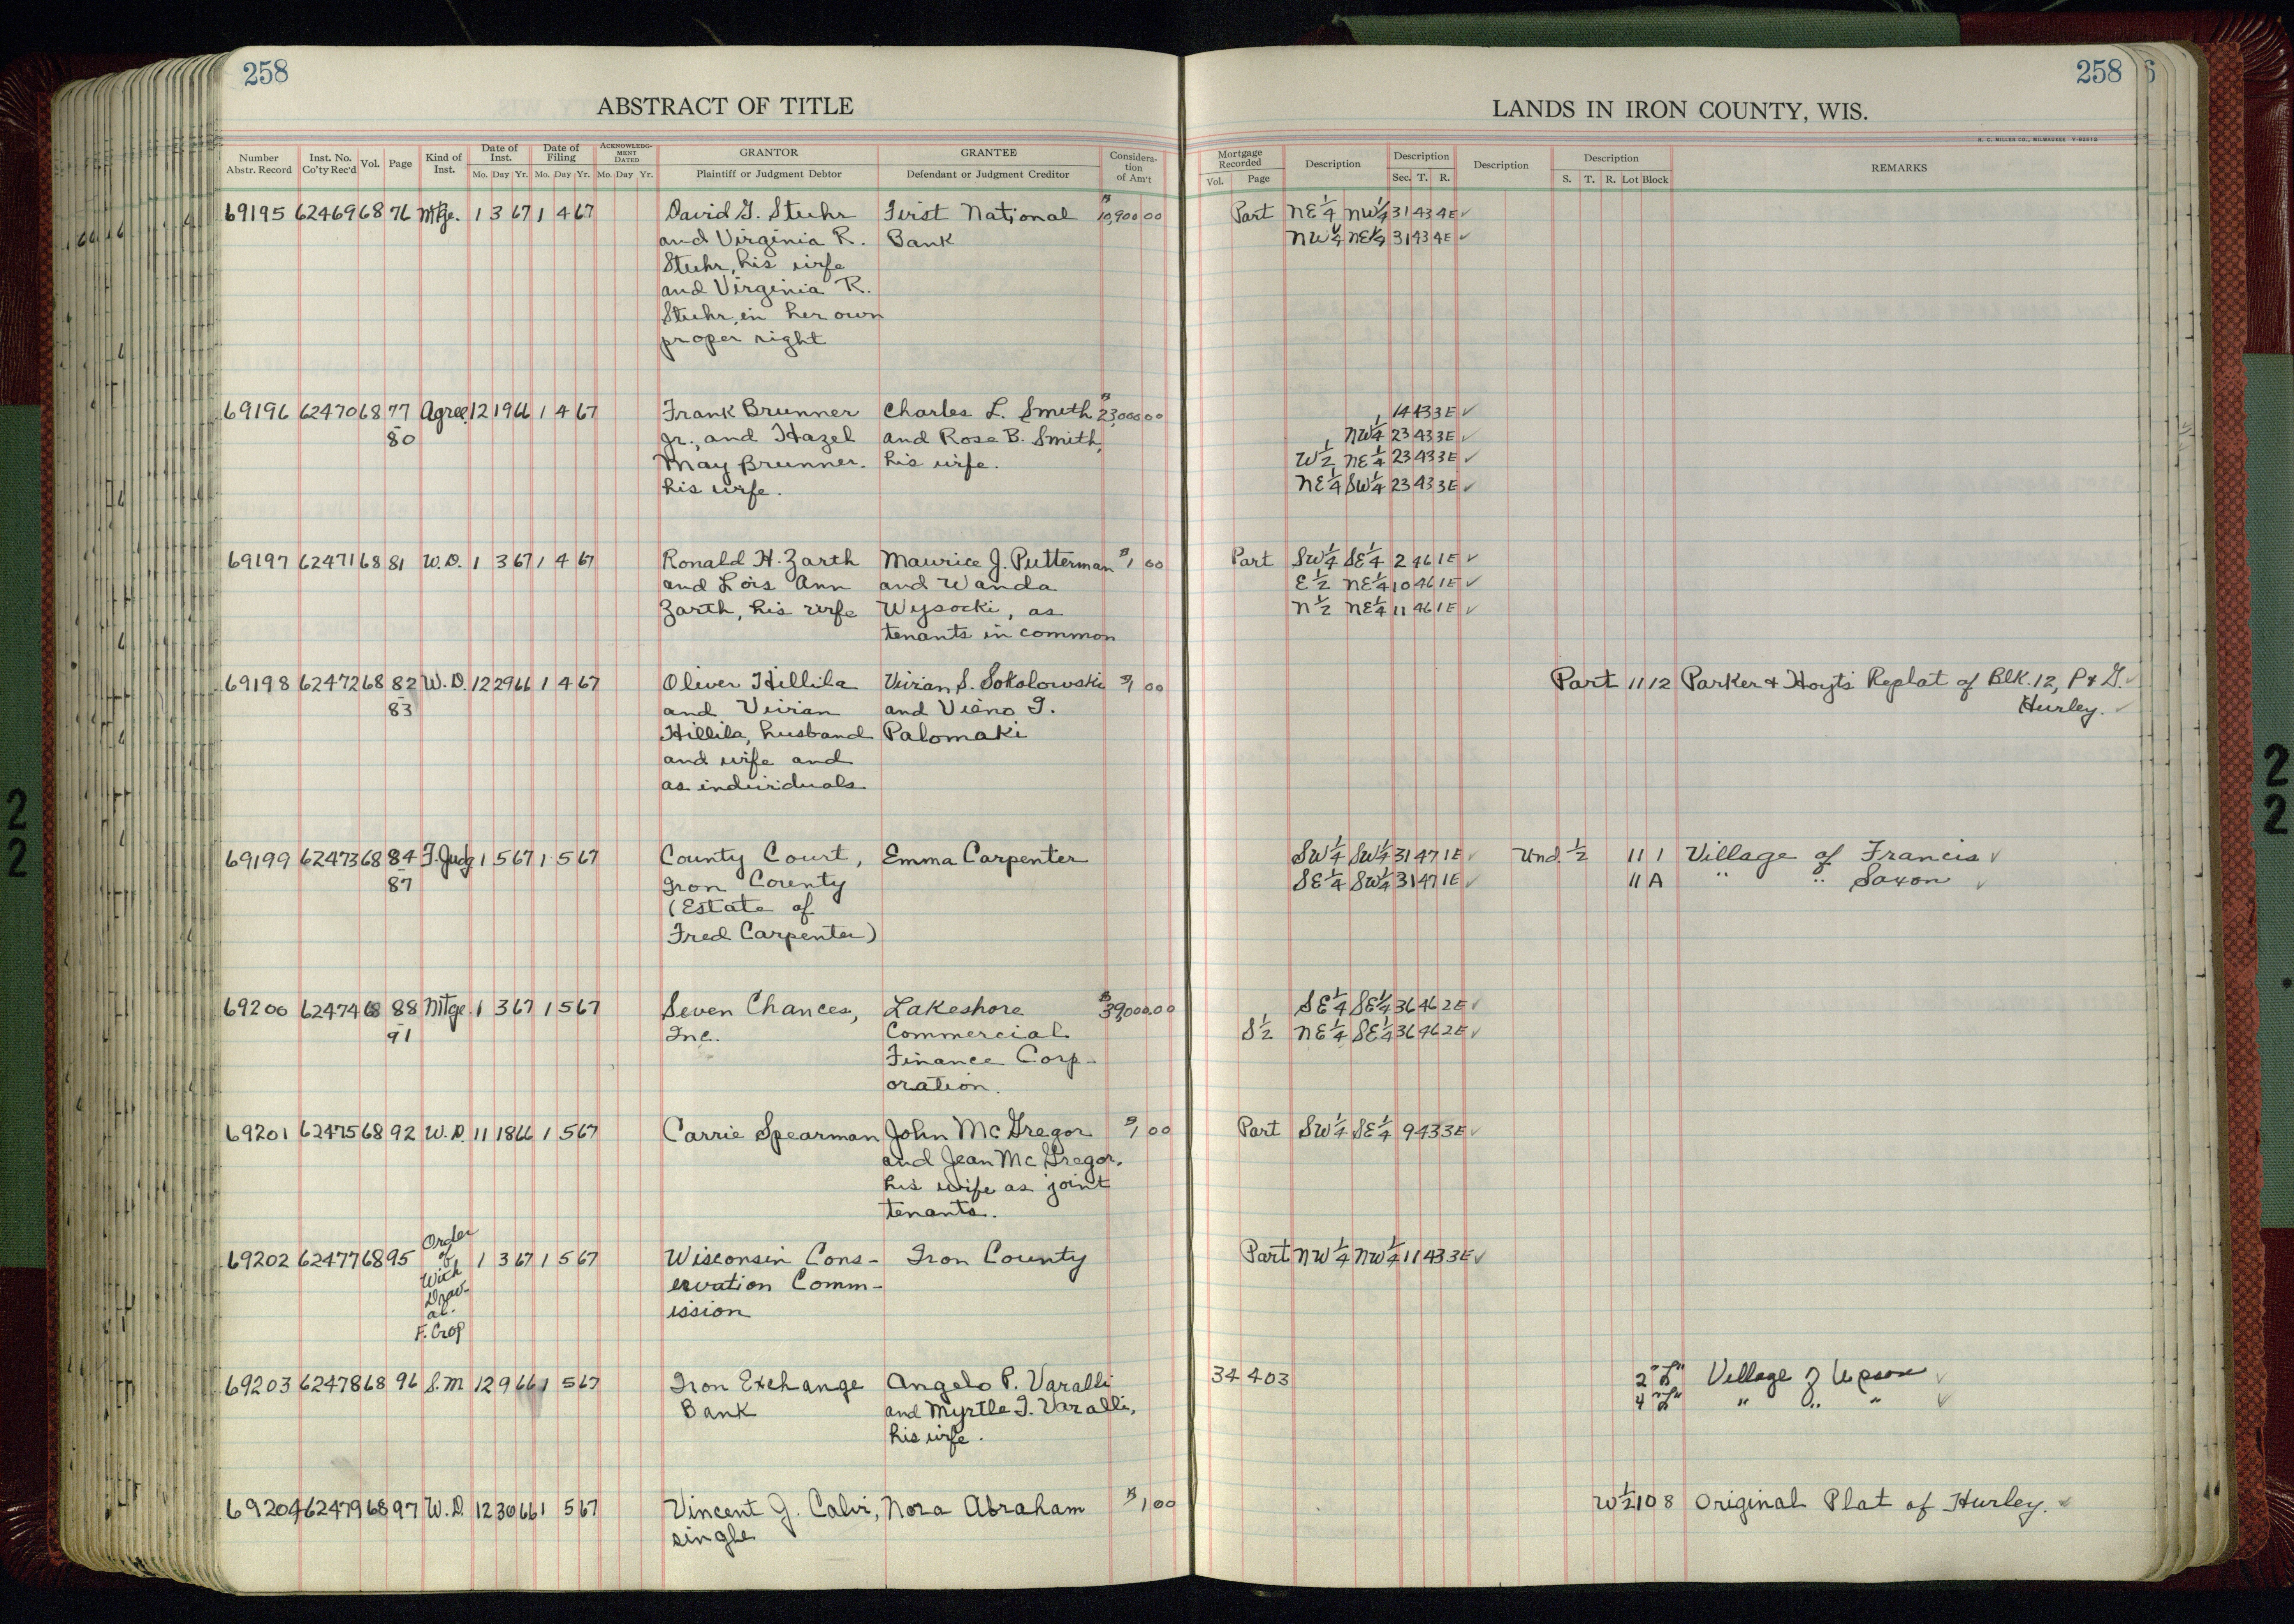 258
ABSTRACT OF TITLE
Number Abstr. Record Inst. No. Co'ty Rec'd Vol. Page Kind of Inst. Date of Inst. Mo. Day Yr. Date of Filing Mo. Day Yr. ACKNOWLEDG-MENT DATED Mo. Day Yr. GRANTOR Plaintiff or Judgment Debtor GRANTEE Defendant or Judgment Creditor Considera-tion of Am't
69195 62469 68 76 Mtge. 1 3 67 1 4 67 David G. Stuhr First National $10,900 00
and Virginia R. Bank
Stuhr, his wife
and Virginia R.
Stuhr, in her own
proper right
69196 62470 68 77 Agree. 12 19 66 1 4 67 Frank Brunner Charles L. Smith $23,000 00
80 Jr., and Hazel and Rose B. Smith,
May Brunner. his wife.
his wife.
69197 62471 68 81 W.D. 1 3 67 1 4 67 Ronald H. Zarth Maurice J. Putterman $1 00
and Lois Ann and Wanda
Zarth, his wife Wysocki, as
tenants in common
69198 62472 68 82 W.D. 12 29 66 1 4 67 Oliver Hillila Vivian S. Sokolowski $1 00
83 and Vivian and Vieno I.
Hillila, husband Palomaki
and wife and
as individuals
69199 62473 68 84 F. Judg 1 5 67 1 5 67 County Court, Emma Carpenter
87 Iron County
(Estate of
Fred Carpenter)
69200 62474 68 88 Mtge. 1 3 67 1 5 67 Seven Chances, Lakeshore $39,000.00
91 Inc. Commercial
Finance Corp-
oration.
69201 62475 68 92 W.D. 11 18 66 1 5 67 Carrie Spearman John McGregor $1 00
and Jean McGregor,
his wife as joint
tenants.
Order
of
69202 62477 68 95 1 3 67 1 5 67 Wisconsin Cons- Iron County
With ervation Comm-
Draw-
al. ission
F. Crop
69203 62478 68 96 S.M 12 9 66 1 5 67 Iron Exchange Angelo P. Varalli
Bank and Myrtle I. Varalli,
his wife.
69204 62479 68 97 W.D. 12 30 66 1 5 67 Vincent J. Calvi, Nora Abraham $1 00
single
258
LANDS IN IRON COUNTY, WIS.
H. C. MILLER CO., MILWAUKEE
Mortgage Recorded Vol. Page Description Description Sec. T. R. Description Description S. T. R. Lot Block REMARKS
Part NE1/4 NW1/4 31 43 4E ✓
NW1/4 NE1/4 31 43 4E ✓
14 43 3E ✓
NW1/4 23 43 3E ✓
W1/2 NE1/4 23 43 3E ✓
NE1/4 SW1/4 23 43 3E ✓
Part SW1/4 SE1/4 2 46 1E ✓
E1/2 NE1/4 10 46 1E ✓
N1/2 NE1/4 11 46 1E ✓
Part 11 12 Parker & Hoyt's Replat of Blk. 12, P & G. ✓
Hurley. ✓
SW1/4 SW1/4 31 47 1E ✓ Und. 1/2 11 1 Village of Francis ✓
SE1/4 SW1/4 31 47 1E ✓ 11 A " " Saxon ✓
SE1/4 SE1/4 36 46 2E ✓
S1/2 NE1/4 SE1/4 36 46 2E ✓
Part SW1/4 SE1/4 9 43 3E ✓
Part NW1/4 NW1/4 11 43 3E ✓
34 403 2 "L" Village of Upson ✓
4 "L" " " " ✓
W1/2 10 8 Original Plat of Hurley. ✓
22
22